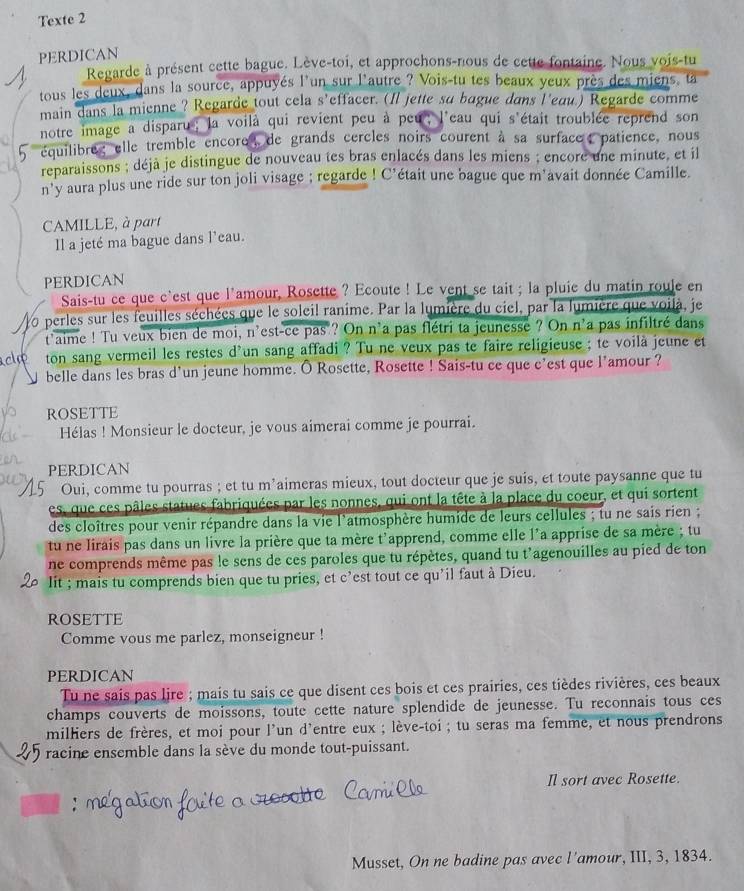 Texte 2
PERDICAN
Regarde à présent cette bague. Lève-toi, et approchons-nous de cette fontaine. Nous vois-tu
tous les deux, dans la source, appuyés l'un sur l'autre ? Vois-tu tes beaux yeux près des miens, ta
main dans la mienne ? Regarde tout cela s'effacer. (Il jette sa bague dans l'eau.) Regarde comme
notre image a disparu ; la voilà qui revient peu à peu ; l'eau qui s'était troublée reprend son
5 équilibre ; elle tremble encore ; de grands cercles noirs courent à sa surface ; patience, nous
reparaissons ; déjà je distingue de nouveau tes bras enlacés dans les miens ; encore une minute, et il
n'y aura plus une ride sur ton joli visage ; regarde ! C'était une bague que m'avait donnée Camille.
CAMILLE, à part
Il a jeté ma bague dans l'eau.
PERDICAN
Sais-tu ce que c'est que l'amour, Rosette ? Ecoute ! Le vent se tait ; la pluie du matin roule en
10 perles sur les feuilles séchées que le soleil ranime. Par la lumière du ciel, par la lumière que voilà, je
t'aime ! Tu veux bien de moi, n'est-ce pas ? On n'a pas flétri ta jeunesse ? On n'a pas infiltré dans
ton sang vermeil les restes d'un sang affadi ? Tu ne veux pas te faire religieuse ; te voilà jeune et
belle dans les bras d'un jeune homme. Ô Rosette, Rosette ! Sais-tu ce que c'est que l'amour ?
ROSETTE
Hélas ! Monsieur le docteur, je vous aimerai comme je pourrai.
PERDICAN
15 Oui, comme tu pourras ; et tu m'aimeras mieux, tout docteur que je suis, et toute paysanne que tu
es, que ces pâles statues fabriquées par les nonnes, qui ont la tête à la place du coeur, et qui sortent
des cloîtres pour venir répandre dans la vie l'atmosphère humide de leurs cellules ; tu ne sais rien ;
tu ne lirais pas dans un livre la prière que ta mère t'apprend, comme elle l'a apprise de sa mère ; tu
ne comprends même pas le sens de ces paroles que tu répètes, quand tu t'agenouilles au pied de ton
20 lit ; mais tu comprends bien que tu pries, et c'est tout ce qu'il faut à Dieu.
ROSETTE
Comme vous me parlez, monseigneur !
PERDICAN
Tu ne sais pas lire ; mais tu sais ce que disent ces bois et ces prairies, ces tièdes rivières, ces beaux
champs couverts de moissons, toute cette nature splendide de jeunesse. Tu reconnais tous ces
milliers de frères, et moi pour l'un d'entre eux ; lève-toi ; tu seras ma femme, et nous prendrons
25 racine ensemble dans la sève du monde tout-puissant.
Il sort avec Rosette.
: négation faite a Camille
Musset, On ne badine pas avec l'amour, III, 3, 1834.